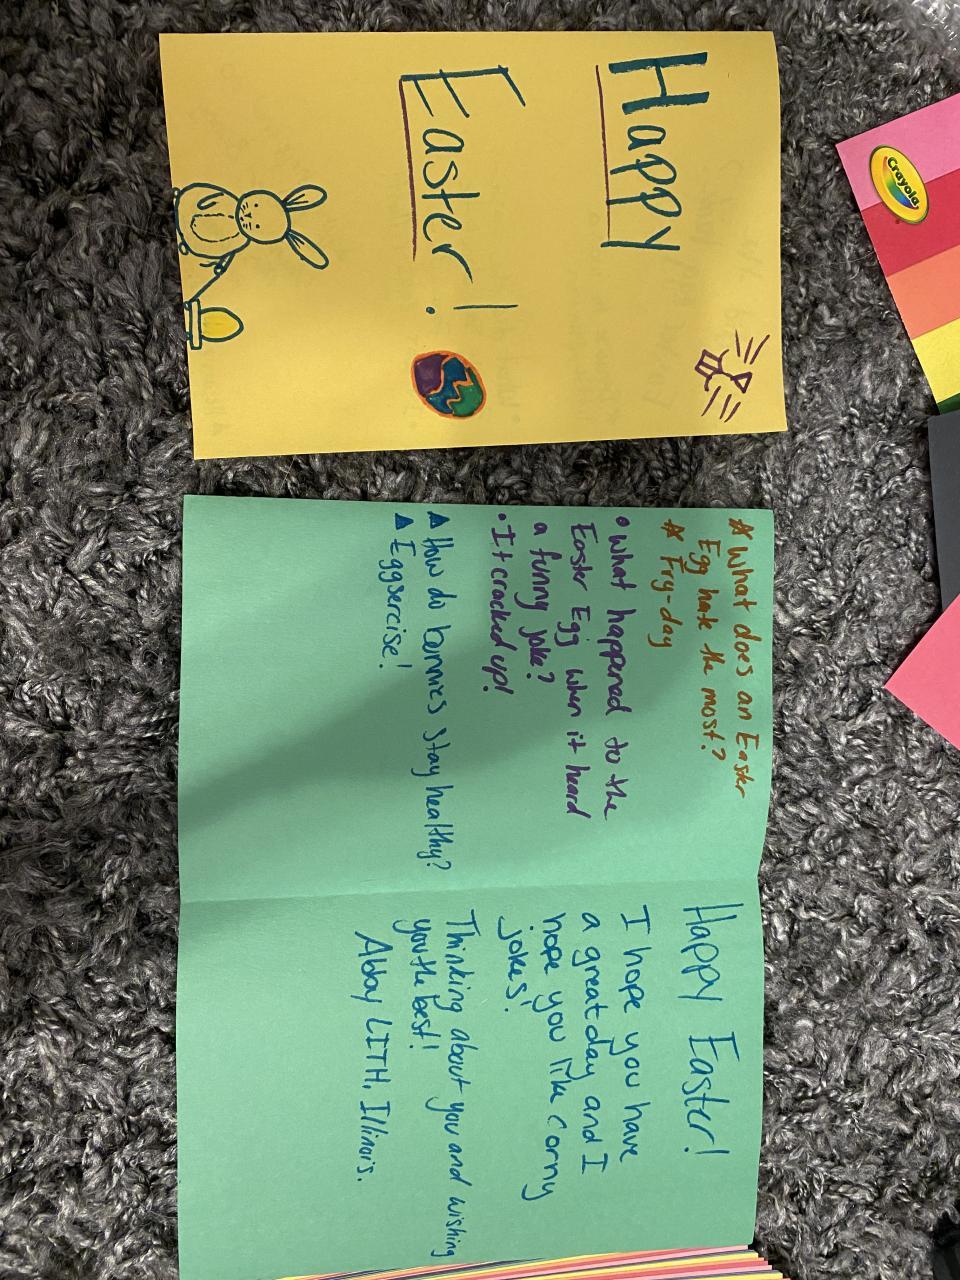 Happy
Easter!
Crayola
* What does an Easter
Egg hate the most?
* Fry-day
• What happened to the
Easter Egg when it heard
a funny joke?
• It cracked up!
▲ How do bunnies stay healthy?
▲ Eggsercise!
Happy Easter!
I hope you have
a great day and I
hope you like corny
jokes!
Thinking about you and wishing
you the best!
Abby LITH, Illinois.